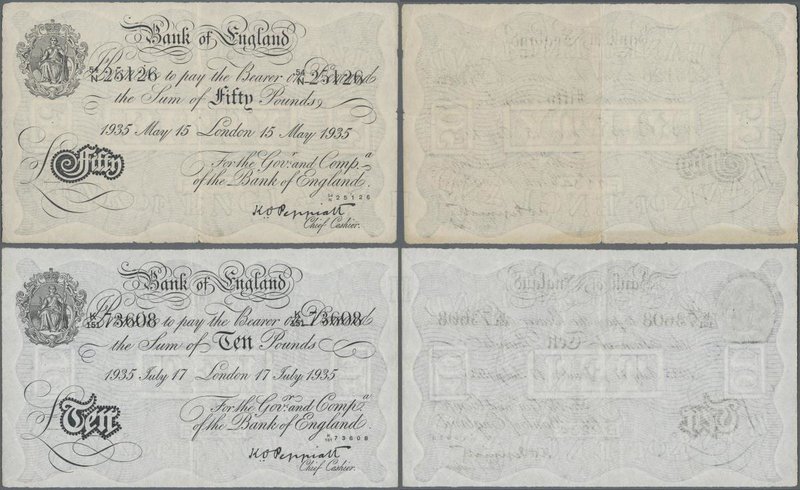 Bank of England
54/N 25126 to pay the Bearer on Demand 54/N 25126
the Sum of Fifty Pounds
1935 May 15 London 15 May 1935
£Fifty
For the Govr. and Compa.
of the Bank of England.
54/N 25126
K.O. Peppiatt
Chief Cashier.
Bank of England
K/151 73608 to pay the Bearer on Demand K/151 73608
the Sum of Ten Pounds
1935 July 17 London 17 July 1935
£Ten
For the Govr. and Compa.
of the Bank of England.
K/151 73608
K.O. Peppiatt
Chief Cashier.